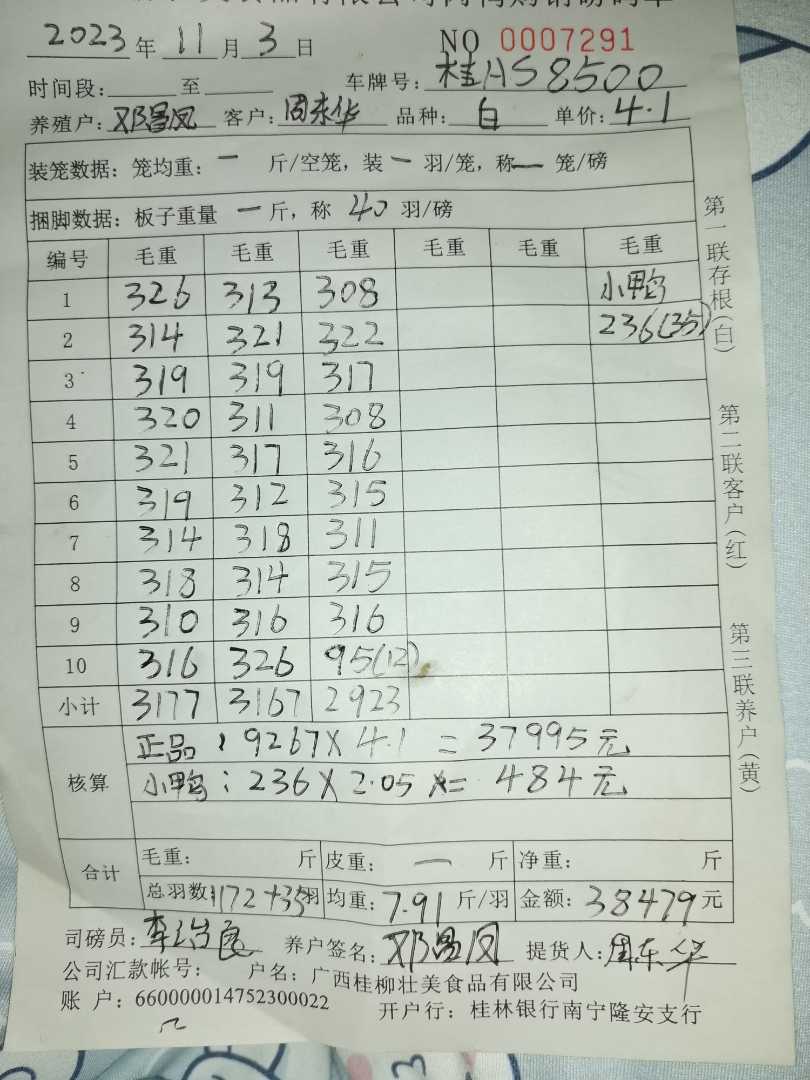 2023年 11月 3日 NO 0007291
时间段: 至 车牌号: 桂HS8500
养殖户: 邓昌凤 客户: 周东华 品种: 白 单价: 4.1
装笼数据: 笼均重: 一 斤/空笼, 装 一 羽/笼, 称 一 笼/磅
捆脚数据: 板子重量 一 斤, 称 40 羽/磅
编号 毛重 毛重 毛重 毛重 毛重 毛重
1 326 313 308 小鸭
2 314 321 322 236(35)
3 319 319 317
4 320 311 308
5 321 317 316
6 319 312 315
7 314 318 311
8 318 314 315
9 310 316 316
10 316 326 95(12)
小计 3177 3167 2923
核算 正品: 9267X4.1=37995元
小鸭: 236X2.05=484元
合计 毛重: 斤 皮重: 一 斤 净重: 斤
总羽数: 1172+35羽 均重: 7.91 斤/羽 金额: 38479元
司磅员: 养户签名: 邓昌凤 提货人: 周东华
公司汇款帐号: 户名: 广西桂柳壮美食品有限公司
账 户: 660000014752300022 开户行: 桂林银行南宁隆安支行
第一联存根(白)
第二联客户(红)
第三联养户(黄)